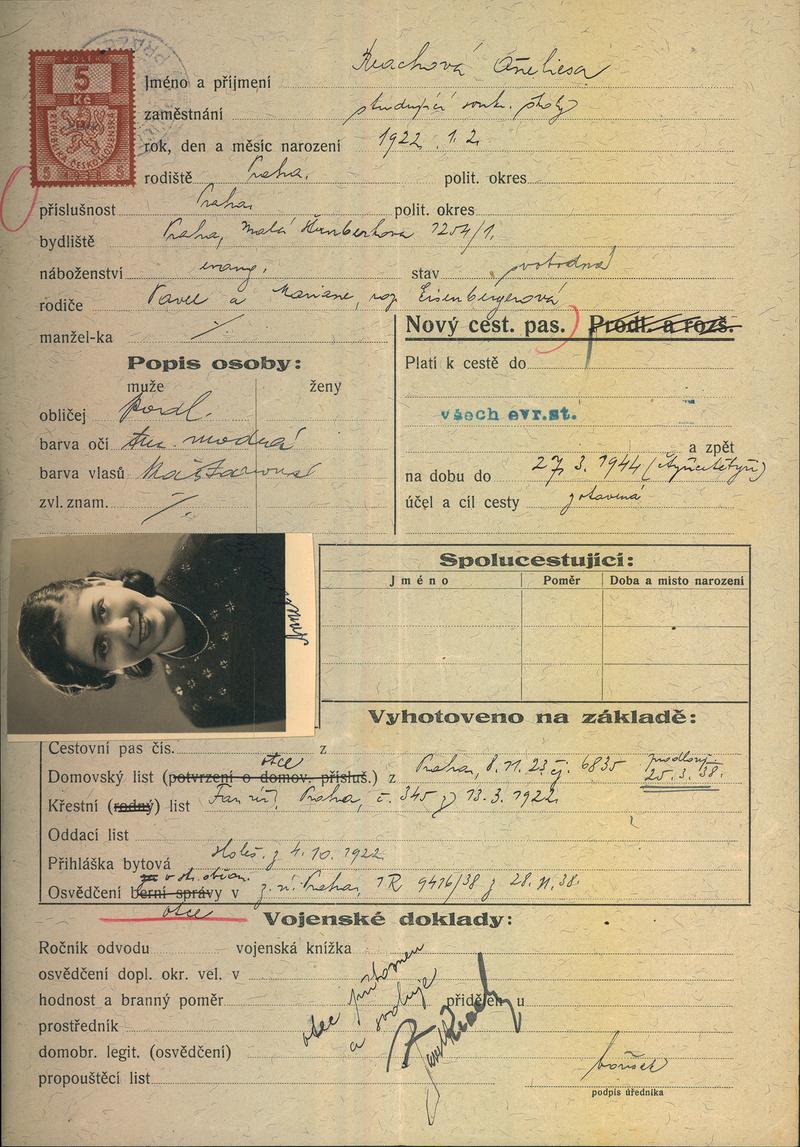 KOLEK
5
Kč
REPUBLIKA ČESKOSLOVENSKÁ
Jméno a příjmení Reachová Aneliesa
zaměstnání studující soukr. školy
rok, den a měsíc narození 1922 1. 2.
rodiště Praha. polit. okres
příslušnost Praha, polit. okres
bydliště Praha, Malá 1254/1.
náboženství evang. stav svobodná
rodiče Pavel a Mariane, roz. Eisenbergerová
manžel-ka ∕.
Nový cest. pas. Prodl. a rozš.
Popis osoby:
Platí k cestě do
muže ženy
všech evr.st.
obličej podl.
barva očí tm. modrá
a zpět
barva vlasů kaštanové
na dobu do 27. 3. 1944 (čtyřicetčtyři)
zvl. znam. ∕.
účel a cíl cesty
Spolucestující:
Jméno Poměr Doba a místo narození
Vyhotoveno na základě:
Cestovní pas čís. z
otce
Domovský list (potvrzení o domov. přísluš.) z Praha, 8. 11. 23 čj. 6835 prodlouž. 25. 3. 38.
Křestní (rodný) list Praha, č. 345 z 13. 3. 1922
Oddací list
Přihláška bytová Holeš. z 4. 10. 1922
o st. občan.
Osvědčení berní správy v z. ú. Praha, 1R 9416/38 z 28. 11. 38.
otce
Vojenské doklady:
Ročník odvodu vojenská knížka
osvědčení dopl. okr. vel. v
hodnost a branný poměr přidělen u
prostředník
domobr. legit. (osvědčení)
propouštěcí list
otec přítomen
a svoluje
podpis úředníka